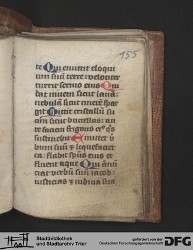 155
te Qui emittit eloqui
um suū terre velociter
currit sermo eius Qui
dat niuem sicut lanā
nebulā sicut cinerē spar
git Mittit cristallū su
am sicut buccellas an
te faciem frigoris eiꝰ qͥs
sustinebit Emittet ū
bum suū et liquefaciet
ea flabit spūs eius et
fluent aque Qui annū
ciat verbū suū iacob
iusticias et iudicia sua
Stadtbibliothek
und Stadtarchiv Trier
gefördert von der
Deutschen Forschungsgemeinschaft
DFG